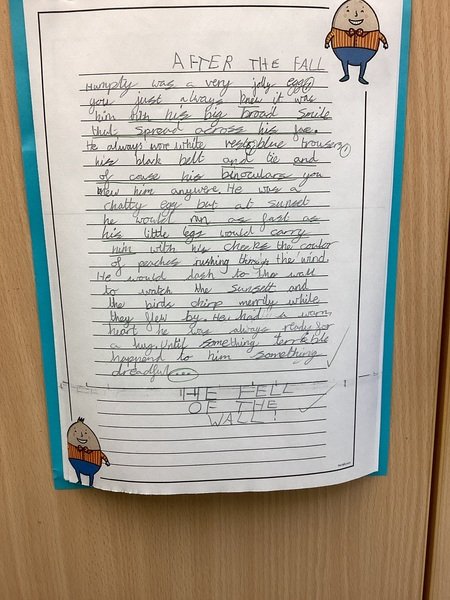 AFTER THE FALL
Humpty was a very jolly egg
you just always knew it was
him with his big broad smile
that spread across his face.
He always wore white vests, blue trousers
his black belt and tie and
of couse his binoculars you
knew him anywere. He was a
chatty egg but at sunset
he would run as fast as
his little legs would carry
him with his cheeks the coulor
of peaches rushing through the wind.
He would dash to the wall
to watch the sunset and
the birds chirp merrily while
they flew by. He had a warm
heart he was always ready for
a hug. Until something terrible
happend to him something
dreadful....
HE FELL
OF THE
WALL!